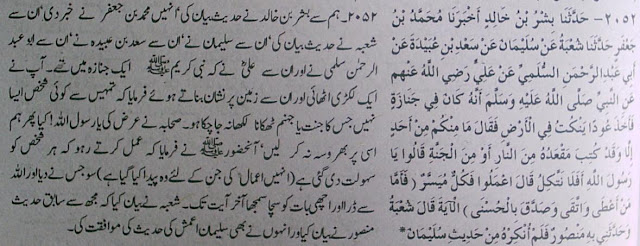 ۲۰۵۲- حَدَّثَنَا بِشْرُ بْنُ خَالِدٍ أَخْبَرَنَا مُحَمَّدُ بْنُ
جَعْفَرٍ حَدَّثَنَا شُعْبَةُ عَنْ سُلَيْمَانَ عَنْ سَعْدِ بْنِ عُبَيْدَةَ عَنْ
أَبِي عَبْدِالرَّحْمَنِ السُّلَمِيِّ عَنْ عَلِيٍّ رَضِي اللَّهُ عَنْهم
عَنِ النَّبِيِّ صَلَّى اللَّهُ عَلَيْهِ وَسَلَّمَ أَنَّهُ كَانَ فِي جَنَازَةٍ
فَأَخَذَ عُودًا يَنْكُتُ فِي الْأَرْضِ فَقَالَ مَا مِنْكُمْ مِنْ أَحَدٍ
إِلَّا وَقَدْ كُتِبَ مَقْعَدُهُ مِنَ النَّارِ أَوْ مِنَ الْجَنَّةِ قَالُوا يَا
رَسُولَ اللَّهِ أَفَلَا نَتَّكِلُ قَالَ اعْمَلُوا فَكُلٌّ مُيَسَّرٌ ( فَأَمَّا
مَنْ أَعْطَى وَاتَّقَى وَصَدَّقَ بِالْحُسْنَى ) الْآيَةَ قَالَ شُعْبَةُ
وَحَدَّثَنِي بِهِ مَنْصُورٌ فَلَمْ أُنْكِرْهُ مِنْ حَدِيثِ سُلَيْمَانَ *
۲۰۵۲۔ ہم سے بشر بن خالد نے حدیث بیان کی‘ انہیں محمد بن جعفر نے خبر دی‘ ان سے
شعبہ نے حدیث بیان کی‘ ان سے سلیمان نے‘ ان سے سعد بن عبیدہ نے‘ ان سے ابو عبد
الرحمٰن سلمی نے اور ان سے علیؓ نے کہ نبی کریم ﷺ ایک جنازہ میں تھے۔ آپ نے
ایک لکڑی اٹھائی اور اس سے زمین پر نشان بناتے ہوئے فرمایا کہ تم میں سے کوئی شخص ایسا
نہیں جس کا جنت یا جہنم ٹھکانا لکھا نہ جا چکا ہو۔ صحابہ نے عرض کی یا رسول اللہ! کیا پھر ہم
اسی پر بھروسہ نہ کر لیں‘ آنحضور ﷺ نے فرمایا کہ عمل کرتے رہو کہ ہر شخص کو
سہولت دی گئی ہے (انہیں اعمال کی جن کے لئے وہ پیدا کیا گیا ہے) سو جس نے دیا اور اللہ
سے ڈرا اور اچھی بات کو سچا سمجھا آخر آیت تک۔ شعبہ نے بیان کیا کہ مجھ سے سابق حدیث
منصور نے بیان کیا اور انہوں نے بھی سلیمان اعمش کی حدیث کی موافقت کی۔